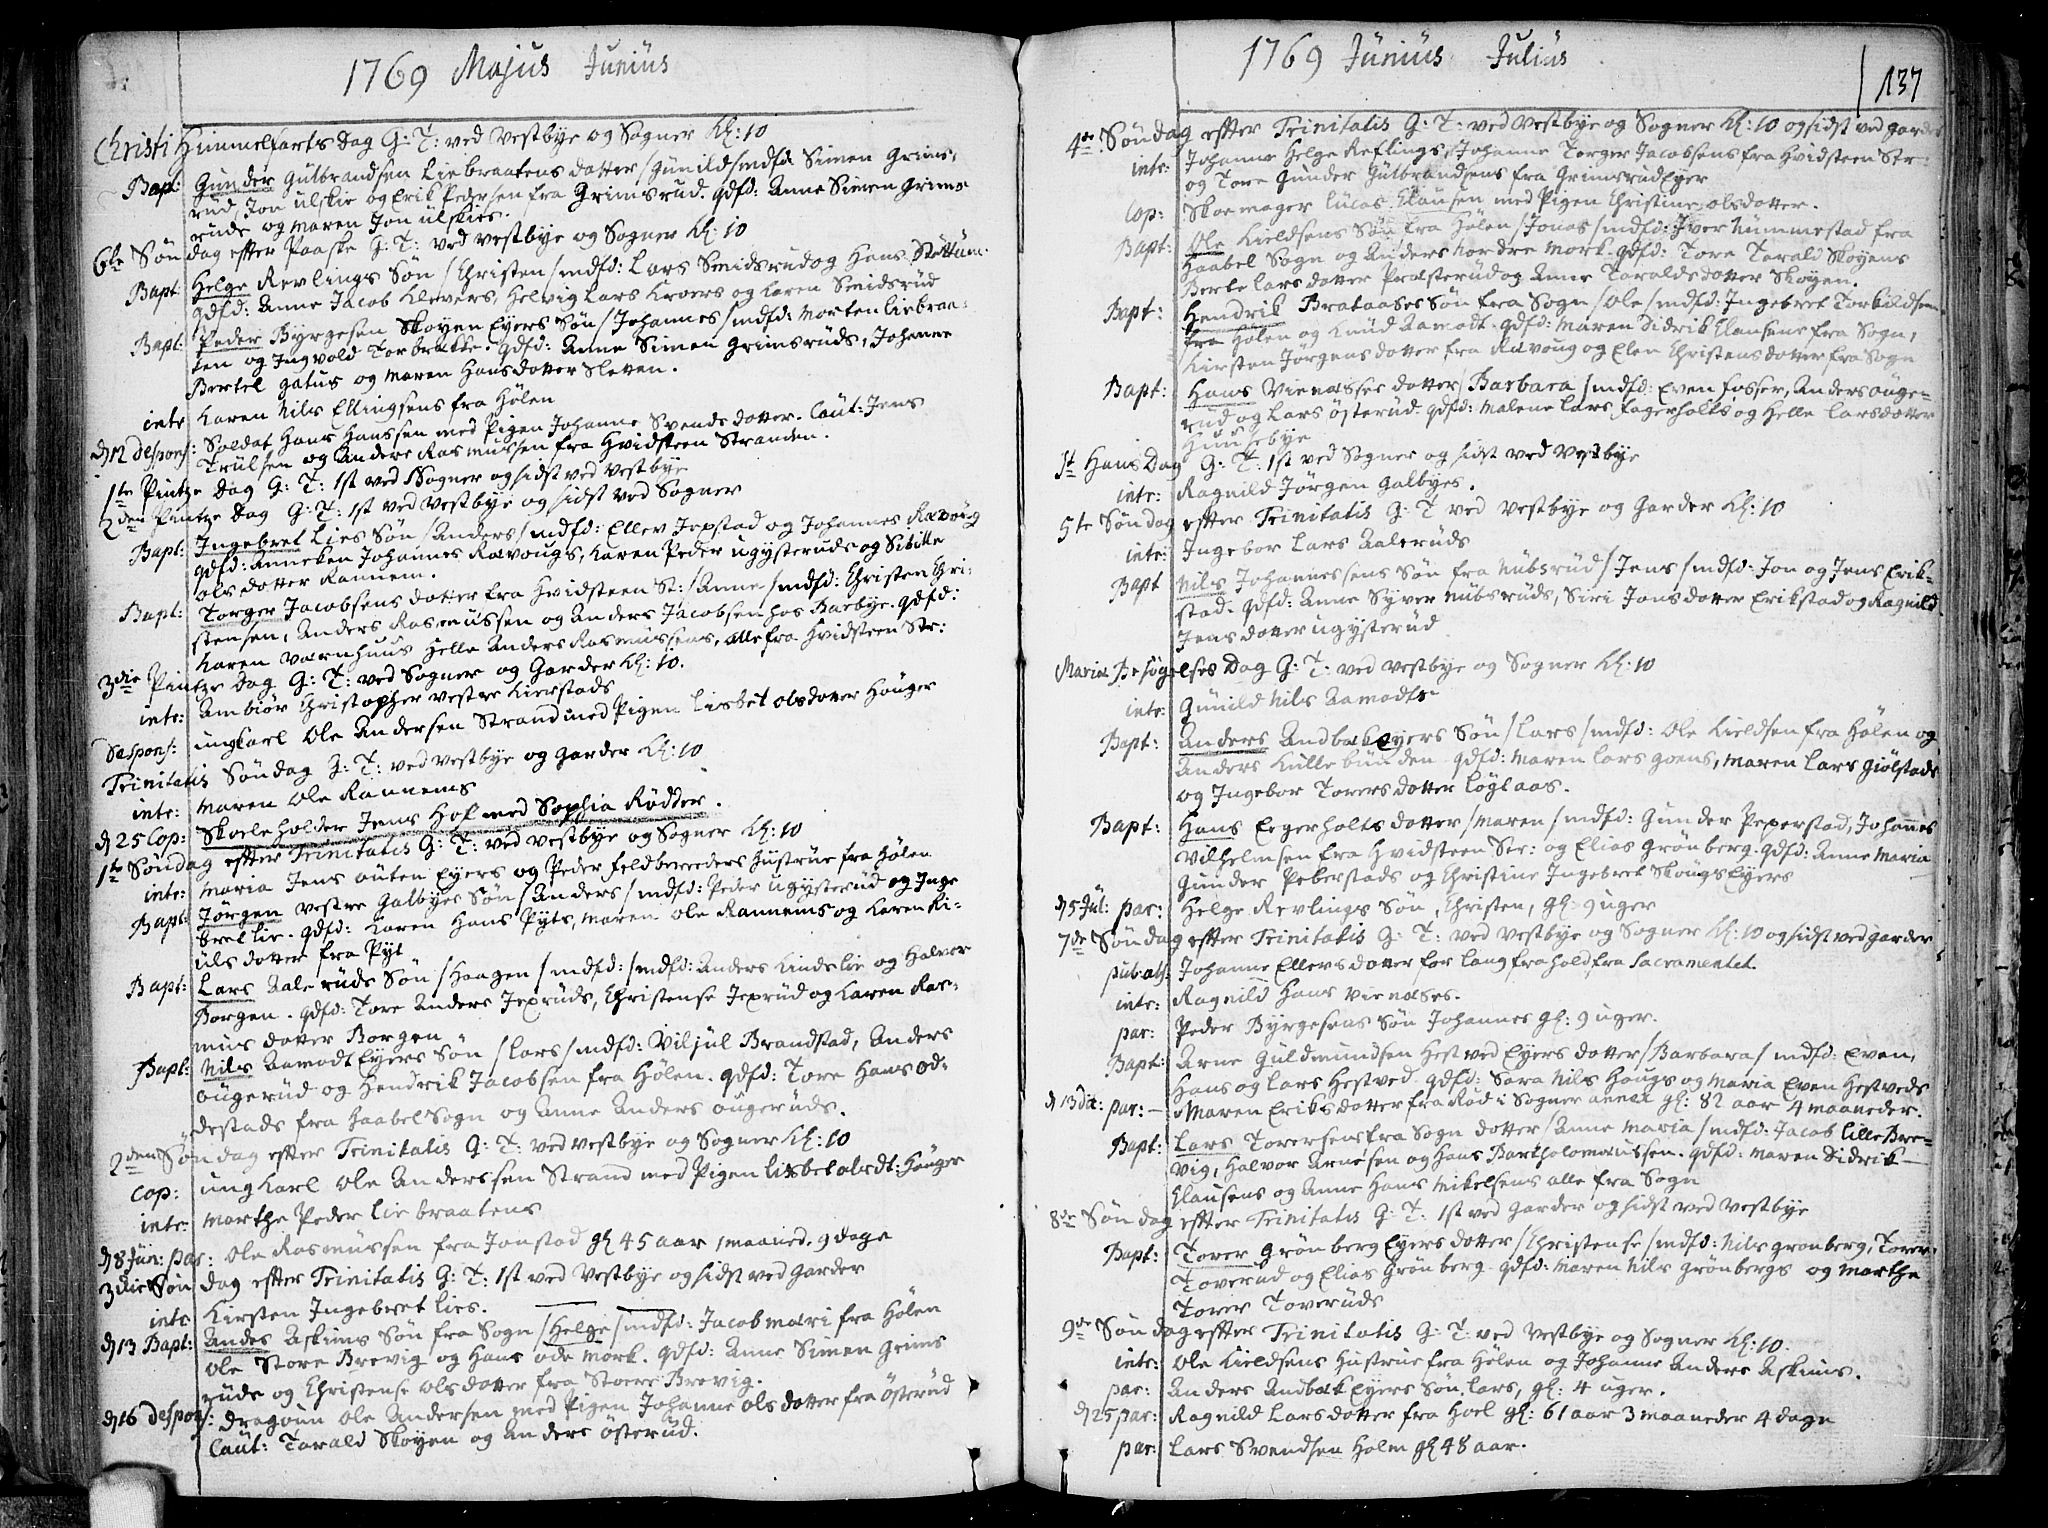 1769 Majus Junius
Christi Himmelfarts Dag G: T: ved Vestbye og Sogner Kl: 10
Bapt: Gunder Gulbrandsen Liebraatens datter / Gunild / mdfd: Simen Grims-
rud, Jon Ulskie og Erik Pedersen fra Grimsrud. qdfd: Anne Simen Grims
ruds og Maren Jon Ulskies.
6te Søndag effter Paaske G: T: ved Vestbye og Sogner Kl: 10
Bapt: Helge Revlings Søn / Christen / mdfd: Lars Smidsrud og Hans Støttum
qdfd: Anne Jacob Klevers, Helvig Lars Kroers og Karen Smidsrud
Bapt: Peder Byrgesen Skøyen Eyers Søn / Johannes / mdfd: Morten Liebraa-
ten og Ingvold Torbrække. qdfd: Anne Simen Grimsruds, Johanne
Bertel Galus og Maren Hansdotter Sletten.
intr Karen Nils Ellingsens fra Hølen
d 12 despons: Soldat Hans Hanssen med Pigen Johanne Svends dotter. Caut: Jens
Trulsen og Anders Rasmussen fra Hvidsteen Stranden.
1te Pintze Dag G: T: 1st ved Sogner og sidst ved Vestbye
2den Pintze Dag G: T: 1st ved Vestbye og sidst ved Sogner
Bapt: Ingebret Lies Søn / Anders / mdfd: Ellev Jepstad og Johannes Ravoug
qdfd: Anneken Johannes Ravougs, Karen Peder Ugysteruds og Sibille
Ols dotter Rannem.
Bapt: Torger Jacobsens dotter fra Hvidsteen St: / Anne / mdfd: Christen Chri-
stensen, Anders Rasmussen og Anders Jacobsen hos Barbye. qdfd:
Karen Varnhuus Helle Anders Rasmussens, alle fra Hvidsteen Str:
3die Pintze Dag G: T: ved Sogner og Garder Kl: 10.
intr: Ambiør Christopher Vestre Kierstads
Despons: ungkarl Ole Andersen Strand med Pigen Lisbet Olsdotter Hauger
Trinitatis Søndag G: T: ved Vestbye og Garder Kl: 10
intr: Maren Ole Rannems
d 25 Cop: Skoleholder Jens Hof med Sophia Rødder.
1te Søndag effter Trinitatis G: T: ved Vestbye og Sogner Kl: 10
intr: Maria Jens Outen Eyers og Peder Feldbereeders Hustrue fra Hølen
Bapt: Jørgen Vestre Galbyes Søn / Anders / mdfd: Peder Ugysterud og Inge
bret Lie. qdfd: Karen Hans Pyts, Maren Ole Rannems og Karen Ki-
uls dotter fra Pyt
Bapt: Lars Aaleruds Søn / Haagen / mdfd: / mdfd: Anders Kindslie og Halvor
Borgen. qdfd: Tore Anders Jepruds, Christense Jeprud og Karen Ras-
mus dotter Borgen.
Bapt: Nils Aamodt Eyers Søn / Lars / mdfd: Viljul Brandstad, Anders
Ougerud og Hendrik Jacobsen fra Hølen. qdfd: Tore Hans Od-
destads fra Haabel Sogn og Anne Anders Ougeruds.
2den Søndag effter Trinitatis G: T: ved Vestbye og Sogner Kl: 10
Cop: ungkarl Ole Anderssen Strand med Pigen Lisbet Olsdt: Hauger
intr: Marthe Peder Liebraatens
d 8 Jun: par: Ole Rasmussen fra Jonstad gl 45 aar 1 maaned. 9 dage
3die Søndag effter Trinitatis G: T: 1st ved Vestbye og sidst ved Garder
intr Kirsten Ingebret Lies.
d 13 Bapt: Andes Askims Søn fra Sogn / Helge / mdfd: Jacob Mari fra Hølen
Ole Store Brevig og Hans Ode Mork. qdfd: Anne Simen Grims
ruds og Christense Olsdotter fra Stoere Brevig.
d 16 despons: Dragoun Ole Andersen med Pigen Johanne Olsdotter fra Østerud
Caut: Tarald Skøyen og Anders Østerud.
1769 Junius Julius
137
4de Søndag effter Trinitatis G: T: ved Vestbye og Sogner Kl: 10 og sidst ved Garder
intr: Johanne Helge Reflings, Johanne Torger Jacobsens fra Hvidsteen Str:
og Tore Gunder Gulbrandsens fra Grimsrud Eyer
Cop: Skoemager Lucas Clausen med Pigen Christine Olsdotter.
Bapt: Ole Kieldsens Søn fra Hølen / Jonas / mdfd: Iver Hummestad fra
Haabel Sogn og Anders Nordre Mork. qdfd: Tore Tarald Skøyens
Berte Lars dotter Præsterud og Anne Taralds dotter Skøyen.
Bapt: Hendrik Brataases Søn fra Sogn / Ole / mdfd: Ingebret Torkildsen
fra Hølen og Knud Aamodt. qdfd: Maren Didrik Clausens fra Sogn,
Kirsten Jørgens dotter fra Ravoug og Elen Christens dotter fra Sogn
Bapt: Hans Vienæsses dotter / Barbara / mdfd: Even Fosser, Anders Ouge-
rud og Lars Østerud. qdfd: Malene Lars Fagerholts og Helle Larsdotter
Huusebye
St Hans Dag G: T: 1st ved Sogner og sidst ved Vestbye
intr: Ragnild Jørgen Galbyes.
5te Søndag effter Trinitatis G: T ved Vestbye og Garder Kl: 10
intr: Ingebor Lars Aaleruds
Bapt Nils Johannessens Søn fra Nubsrud / Jens / mdfd: Jon og Jens Erik-
stad. qdfd: Anne Syver Nubsruds, Siri Jonsdotter Erikstad og Ragnild
Jensdotter Ugysterud
Mariæ Besøgelses Dag G: T: ved Vestbye og Sogner Kl: 10
intr: Gunild Nils Aamodts
Bapt: Anders Andbæk Eyers Søn / Lars / mdfd: Ole Kieldsen fra Hølen og
Anders Kullebunden. qdfd: Maren Lars Goens, Maren Lars Giølstads
og Ingebor Torers dotter Løglaas.
Bapt: Hans Egerholts dotter / Maren / mdfd: Gunder Peperstad, Johannes
Vilhelmsen fra Hvidsteen Str: og Elias Grønberg. qdfd: Anne Maria
Gunder Peberstads og Christine Ingebret Skougs Eyers
d 5 Jul: par: Helge Revlings Søn, Christen, gl: 9 uger
7de Søndag effter Trinitatis G: T: ved Vestbye og Sogner Kl: 10 og sidst ved Garder
pub: abs: Johanne Ellevsdotter for lang frahold fra Sacramentet.
intr: Ragnild Hans Vienæses.
par: Peder Byrgesens Søn Johannes gl: 9 uger.
Bapt: Arne Guldmundsen Hestved Eyers dotter / Barbara / mdfd: Even,
Hans og Lars Hestved. qdfd: Sara Nils Hougs og Maria Even Hestveds
d 13 dit: par: Maren Eriksdotter fra Rød i Sogner annex gl: 82 aar 4 maaneder.
Bapt: Lars Torersens fra Sogn dotter / Anne Maria / mdfd: Jacob Lille Bre-
vig, Halvor Arnesen og Hans Bartholomæussen. qdfd: Maren Didrik
Clausens og Anne Hans Mikelsens alle fra Sogn
8de Søndag effter Trinitatis G: T: 1st ved Garder og sidst ved Vestbye
Bapt: Torer Grønberg Eyers dotter / Christense / mdfd: Nils Grønberg, Torer
Toverud og Elias Grønberg. qdfd: Maren Nils Grønbergs og Marthe
Torer Toveruds
9de Søndag effter Trinitatis G: T: ved Vestbye og Sogner Kl: 10.
intr: Ole Kieldsens Hustrue fra Hølen og Johanne Anders Askims.
par: Anders Andbæk Eyers Søn, Lars, gl: 4 uger.
d 25 par: Ragnild Larsdotter fra Hoel gl: 61 aar 3 maaneder 4 dage
par: Lars Svendsen Holm gl 48 aar.